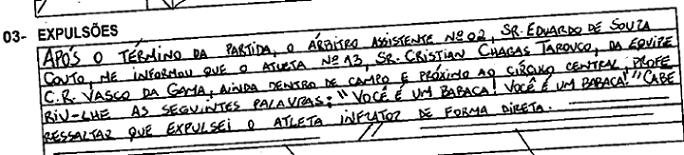 03- EXPULSÕES
APÓS O TÉRMINO DA PARTIDA, O ÁRBITRO ASSISTENTE Nº 02, SR. EDUARDO DE SOUZA
COUTO, ME INFORMOU QUE O ATLETA Nº 13, SR. CRISTIAN CHAGAS TAROUCO, DA EQUIPE
C.R. VASCO DA GAMA, AINDA DENTRO DE CAMPO E PRÓXIMO AO CÍRCULO CENTRAL, PROFE
RIU-LHE AS SEGUINTES PALAVRAS: "VOCÊ É UM BABACA! VOCÊ É UM BABACA!" CABE
RESSALTAR QUE EXPULSEI O ATLETA INFRATOR DE FORMA DIRETA.